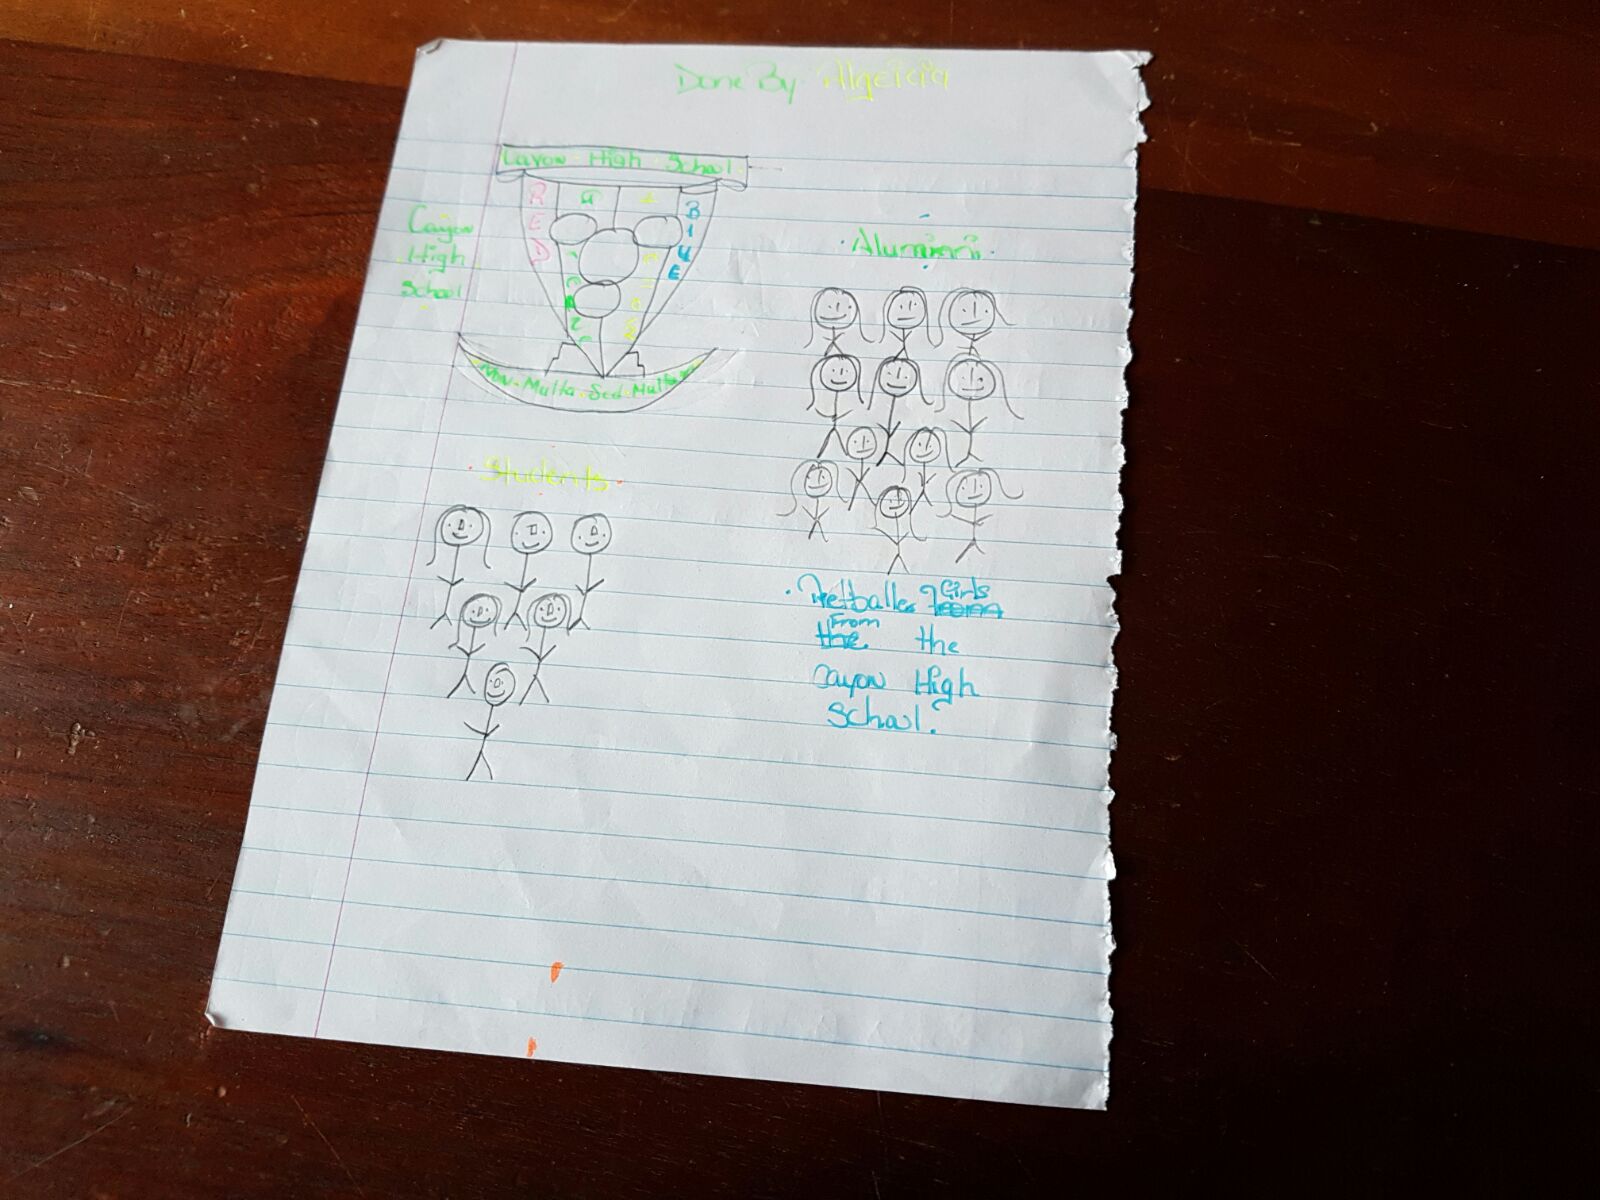 Done By Algeicia
Cayon High School
RED
BlUE
Cayon
High
School
Non Multa Sed Multum
Alumini
Students
Netballer Girls
From the
Cayon High
School.